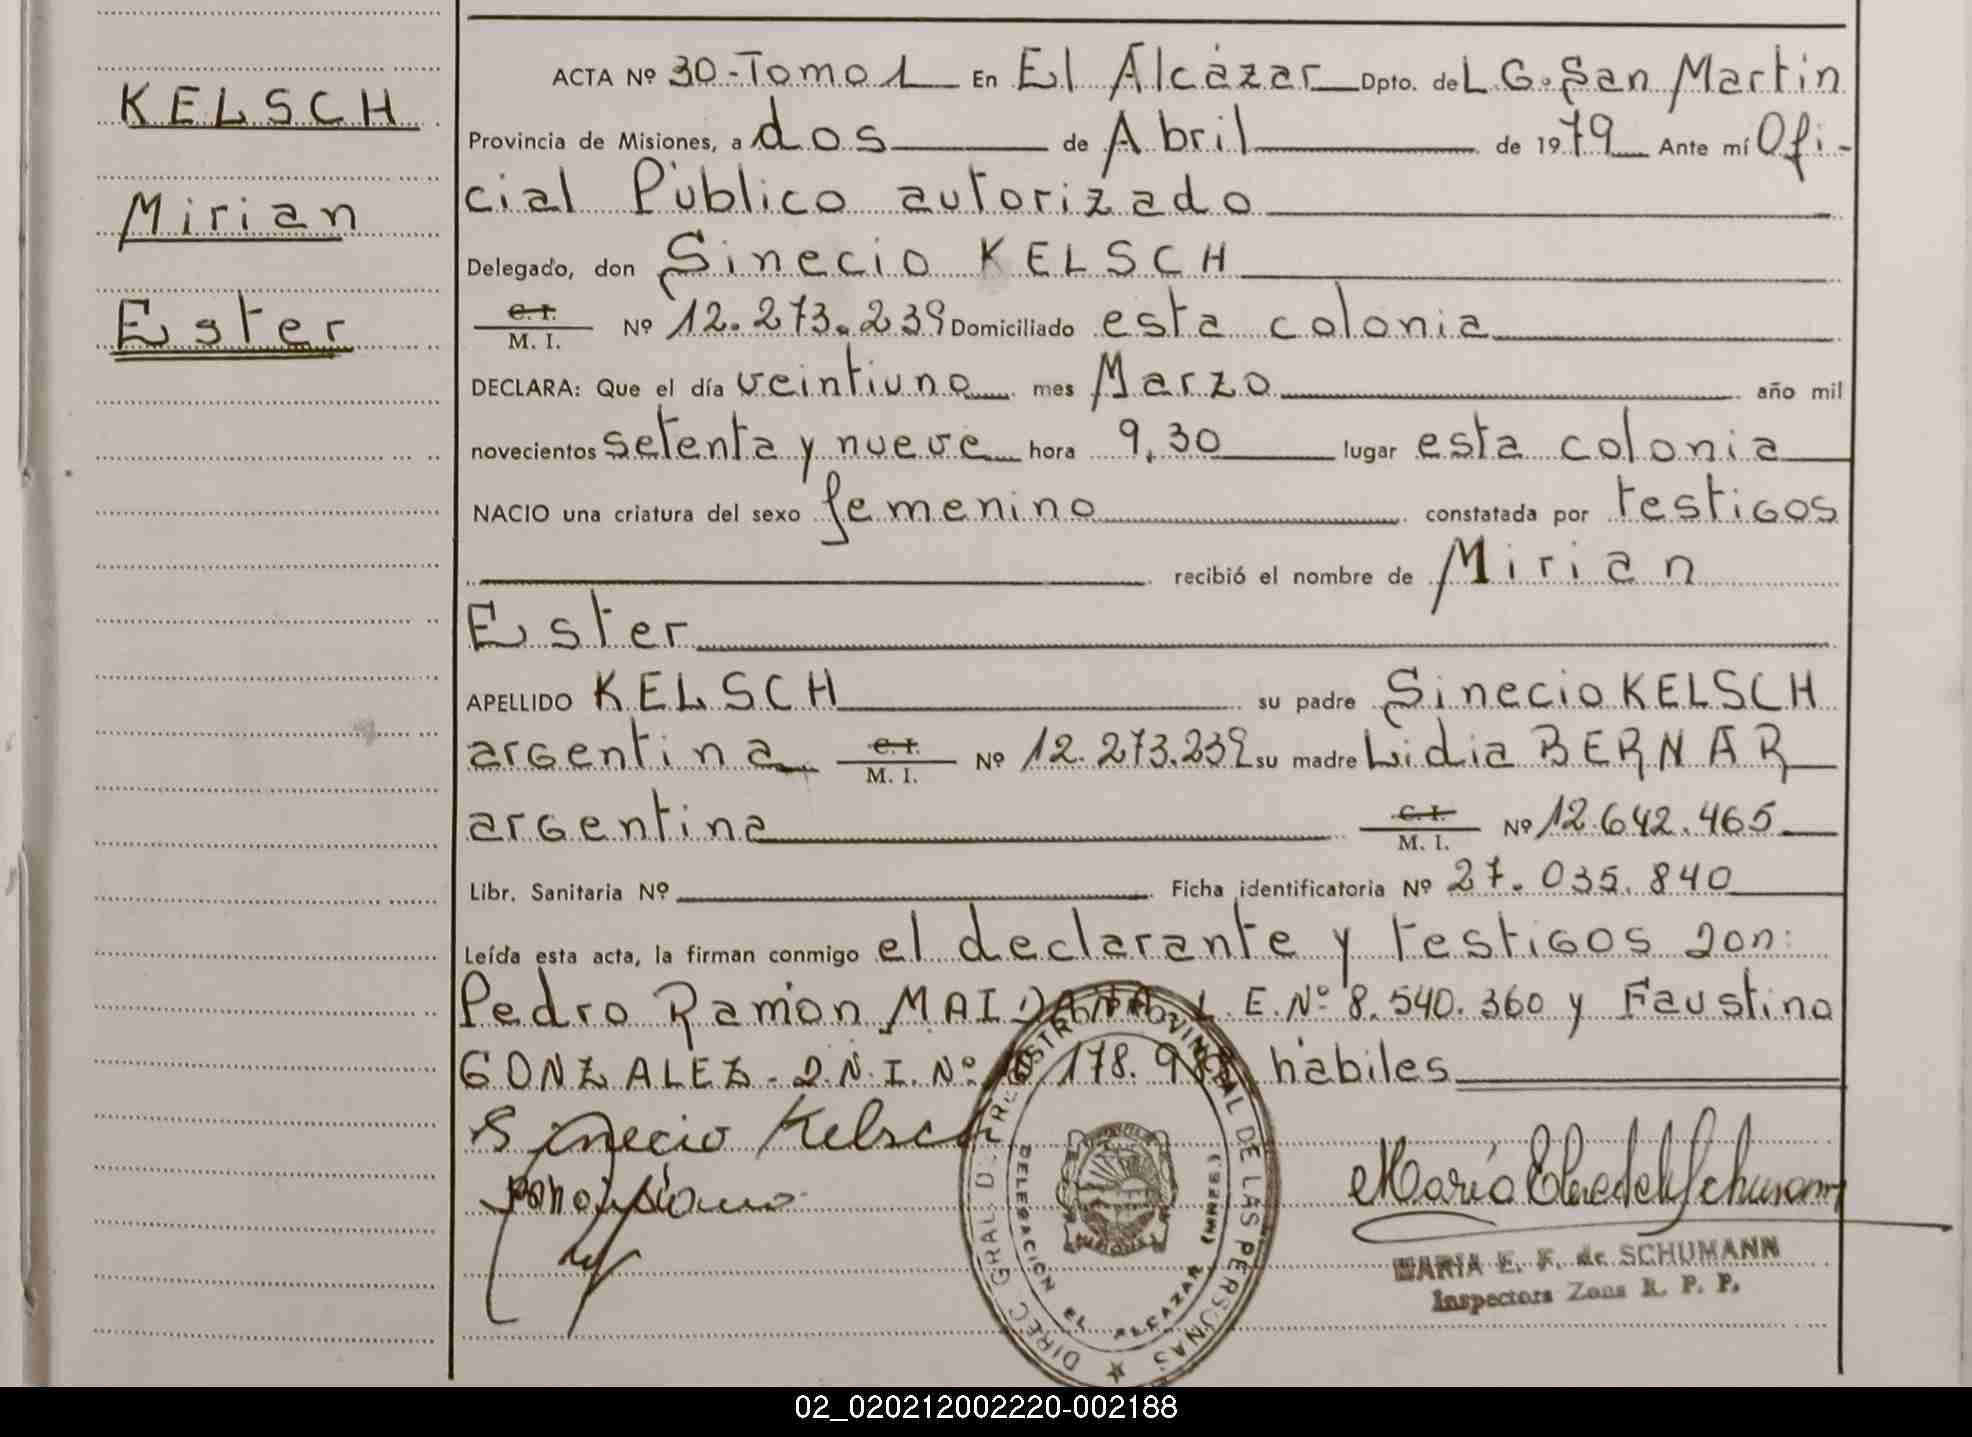 KELSCH
Mirian
Ester
ACTA Nº 30-Tomo 1 En El Alcázar Dpto. de L.G. San Martín
Provincia de Misiones, a dos de Abril de 1979 Ante mí Ofi-
cial Público autorizado
Delegado, don Sinecio KELSCH
C.I. / M. I. Nº 12.273.239 Domiciliado esta colonia
DECLARA: Que el día veintiuno mes Marzo año mil
novecientos setenta y nueve hora 9,30 lugar esta colonia
NACIO una criatura del sexo femenino constatada por testigos
recibió el nombre de Mirian
Ester
APELLIDO KELSCH su padre Sinecio KELSCH
argentina C.I. / M. I. Nº 12.273.239 su madre Lidia BERNAR
argentina C.I. / M. I. Nº 12.642.465
Libr. Sanitaria Nº Ficha identificatoria Nº 27.035.840
Leída esta acta, la firman conmigo el declarante y testigos Don:
Pedro Ramón MAIDANA L.E.Nº 8.540.360 y Faustino
GONZALEZ-D.N.I.Nº 178. hábiles
Sinecio Kelsch
MARIA E. F. de SCHUMANN
Inspectora Zona R. P. P.
DIREC GRAL DE REGISTRO PROVINCIAL DE LAS PERSONAS
DELEGACION EL ALCAZAR (MNES.)
02_020212002220-002188